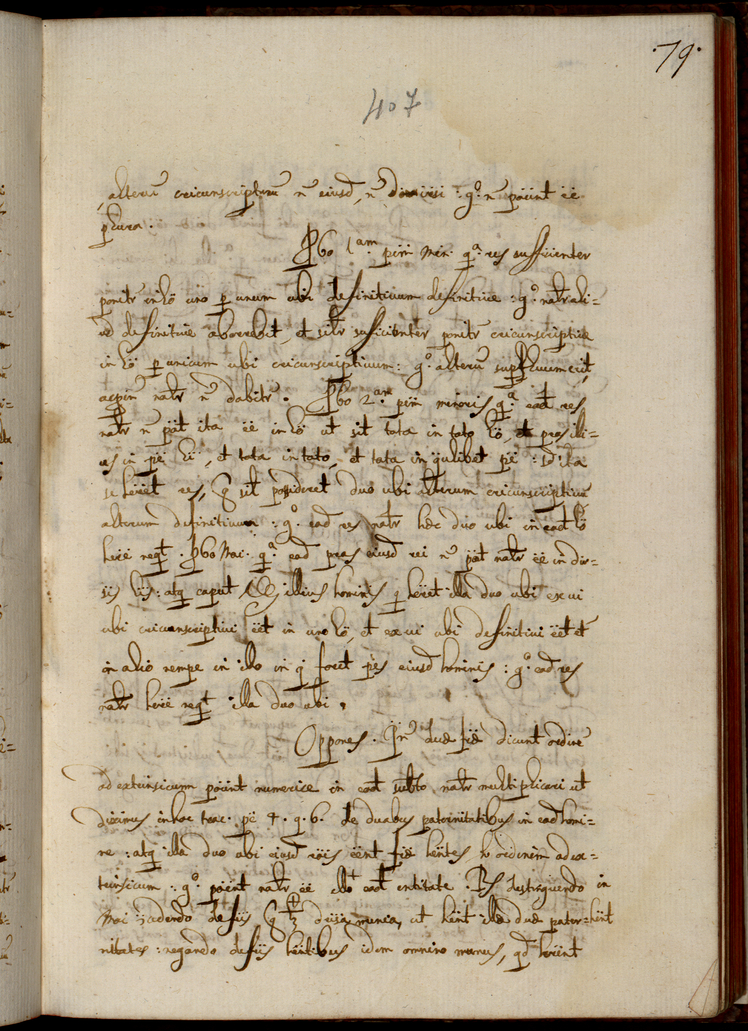 .79.
407
alterũ circunscriptiuũ ñ eiusd, ñ diuersi : gº. ñ poũnt eẽ
plura.
Pbo 1am. pẽm min. qa. res sufficienter
ponitr in lõ uno p unum ubi definitiuum definitiue : gº. natr ali-
definitiue aborrebit, et silr sufficienter ponitr circunscriptiue
in lõ p unicum ubi circunscriptiuum : gº. alterũ supfluum erit,
ac pin natr ñ dabitr. Pbo 2am. pẽm minoris qa. eãd res
natr ñ põt ita eẽ in lõ ut sit tota in toto lõ, et pars illi-
us in pẽ li, et tota in toto, et tota in qũlibet pẽ : sd ita
se hẽret res, q sil possideret duo ubi alterum circunscriptiuũ
alterum definitiuum : gº. eãd res natr hẽc duo ubi in eõd lõ
hẽre neqt. Pbo Mai. qa. eãd pars eiusd rei ñ põt natr eẽ in diũr-
sis lis : atq caput illius hominis q hẽret illa duo ubi ex ui
ubi circunscriptiui eẽt in uno lõ, et ex ui ubi definitiui eẽt et
in alio nempe in illo in q foret pẽs eiusd hominis : gº. eãd res
natr hẽre neqt illa duo ubi.
Oppones. duæ dicunt ordinẽ
ad extrinsicum poũnt numerice in eõd subto natr multiplicari ut
diximus in hoc trac. pẽ 4. q. 6. de duabus paternitatibus in eõd homi-
ne : atq illa duo ubi eiusd rõis eẽnt hẽntes ordinem ad ex-
trinsicum : gº. poẽnt natr eẽ in eãd entitate. Rs distinguendo in
Mai : cedendo de iis q diũsa munia, ut hẽnt illæ duæ pater-
nitates : negando de iis hẽntibus idem omnino munus, qd hẽrent